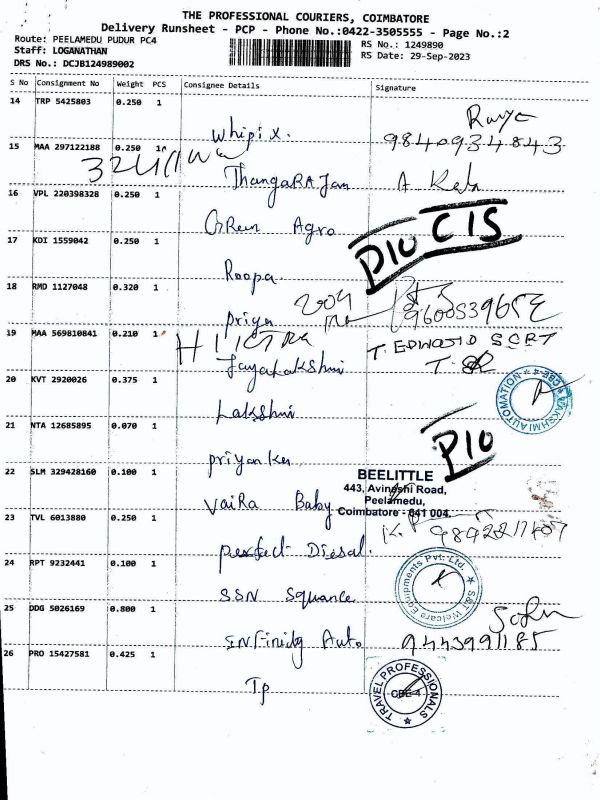 THE PROFESSIONAL COURIERS, COIMBATORE
Delivery Runsheet - PCP - Phone No.:0422-3505555 - Page No.:2
Route: PEELAMEDU PUDUR PC4
RS No.: 1249890
Staff: LOGANATHAN
RS Date: 29-Sep-2023
DRS No.: DCJB124989002
S No Consignment No Weight PCS Consignee Details Signature
14 TRP 5425803 0.250 1
Whipix.
9840934843
15 MAA 297122188 0.250 1
ThangaRAJan
16 VPL 220398328 0.250 1
Green Agro
PIO CIS
17 KDI 1559042 0.250 1
Roopa
18 RMD 1127048 0.320 1
priya
19 MAA 569810841 0.210 1
Jayalakshmi
20 KVT 2920026 0.375 1
LAKSHMI AUTOMATION
Lakshmi
21 NTA 12685895 0.070 1
PIO
priyanka
22 SLM 329428160 0.100 1
BEELITTLE
443, Avinashi Road,
Peelamedu,
Coimbatore - 641 004.
VaiRa Baby
23 TVL 6013880 0.250 1
perfect Diesal.
24 RPT 9232441 0.100 1
S&T Welcare Equipments Pvt. Ltd.
SSN Squance
25 DDG 5026169 0.800 1
9443991185
Infinidy Auto
26 PRO 15427581 0.425 1
Tp
TRAVEL PROFESSIONALS
CBE-4